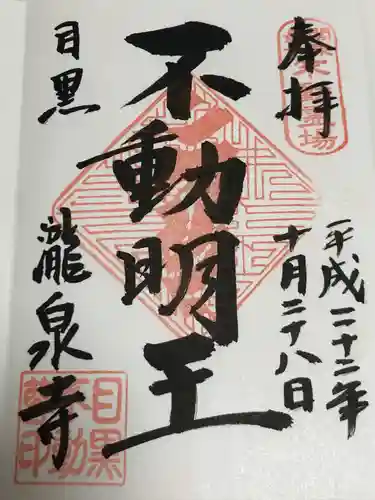 奉拝
平成二十二年
十月二十八日
不動明王
目黒
瀧泉寺
目黒